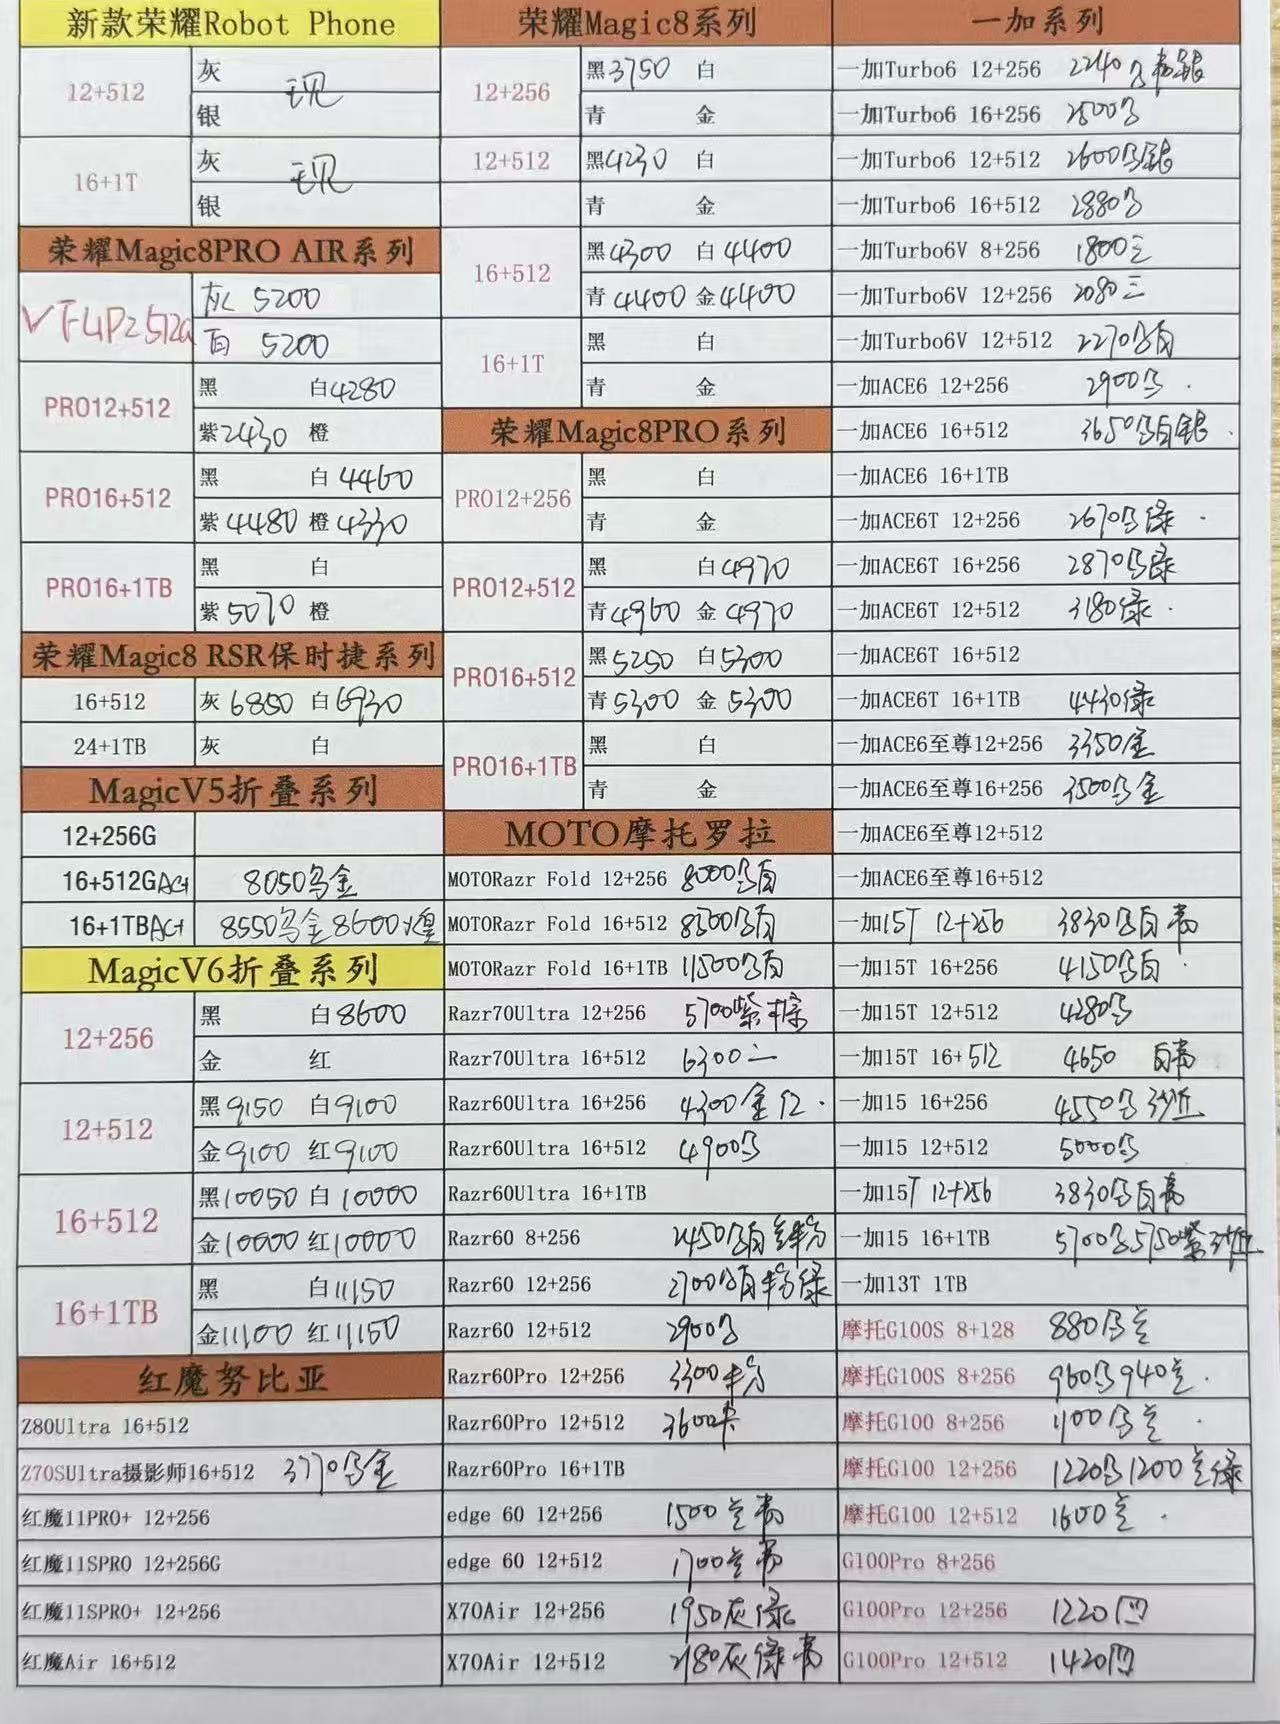 新款荣耀Robot Phone
12+512
灰
现
银
16+1T
灰
现
银
荣耀Magic8PRO AIR系列
灰 5200
白 5200
PRO12+512
黑 白4280
紫2430 橙
PRO16+512
黑 白4460
紫4480 橙4330
PRO16+1TB
黑 白
紫5070 橙
荣耀Magic8 RSR保时捷系列
16+512 灰6850 白6930
24+1TB 灰 白
MagicV5折叠系列
12+256G
16+512G 8050乌金
16+1TB 8550乌金8600
MagicV6折叠系列
12+256
黑 白8600
金 红
12+512
黑9150 白9100
金9100 红9100
16+512
黑10050 白10000
金10000 红10000
16+1TB
黑 白11150
金11100 红11150
红魔努比亚
Z80Ultra 16+512
Z70SUltra摄影师16+512 3770乌金
红魔11PRO+ 12+256
红魔11SPRO 12+256G
红魔11SPRO+ 12+256
红魔Air 16+512
荣耀Magic8系列
12+256
黑3750 白
青 金
12+512
黑4230 白
青 金
16+512
黑4300 白4400
青4400 金4400
16+1T
黑 白
青 金
荣耀Magic8PRO系列
PRO12+256
黑 白
青 金
PRO12+512
黑 白4970
青4960 金4970
PRO16+512
黑5250 白5300
青5300 金5300
PRO16+1TB
黑 白
青 金
MOTO摩托罗拉
MOTORazr Fold 12+256 8000乌白
MOTORazr Fold 16+512 8500乌白
MOTORazr Fold 16+1TB 11500乌白
Razr70Ultra 12+256 5700紫棕
Razr70Ultra 16+512 6300二
Razr60Ultra 16+256 4300金红
Razr60Ultra 16+512 4900乌
Razr60Ultra 16+1TB
Razr60 8+256 2450乌白
Razr60 12+256 2700乌白粉绿
Razr60 12+512 2900乌
Razr60Pro 12+256 3300粉
Razr60Pro 12+512 3600
Razr60Pro 16+1TB
edge 60 12+256 1500兰青
edge 60 12+512 1700兰青
X70Air 12+256 1950灰绿
X70Air 12+512 2180灰绿青
一加系列
一加Turbo6 12+256 2240乌青银
一加Turbo6 16+256 2500乌
一加Turbo6 12+512 2600乌银
一加Turbo6 16+512 2880乌
一加Turbo6V 8+256 1800三
一加Turbo6V 12+256 2080三
一加Turbo6V 12+512 2270乌白
一加ACE6 12+256 2900乌
一加ACE6 16+512 3650乌白银
一加ACE6 16+1TB
一加ACE6T 12+256 2670乌绿
一加ACE6T 16+256 2870乌绿
一加ACE6T 12+512 3180绿
一加ACE6T 16+512
一加ACE6T 16+1TB 4430绿
一加ACE6至尊12+256 3350金
一加ACE6至尊16+256 3500乌金
一加ACE6至尊12+512
一加ACE6至尊16+512
一加15T 12+256 3830乌白青
一加15T 16+256 4150乌白
一加15T 12+512 4280乌
一加15T 16+512 4650 白青
一加15 16+256 4550乌
一加15 12+512 5000乌
一加15T 12+256 3830乌白青
一加15 16+1TB 5700乌5750紫
一加13T 1TB
摩托G100S 8+128 880乌兰
摩托G100S 8+256 960乌940兰
摩托G100 8+256 1100乌兰
摩托G100 12+256 1220乌1200兰绿
摩托G100 12+512 1600兰
G100Pro 8+256
G100Pro 12+256 1220
G100Pro 12+512 1420